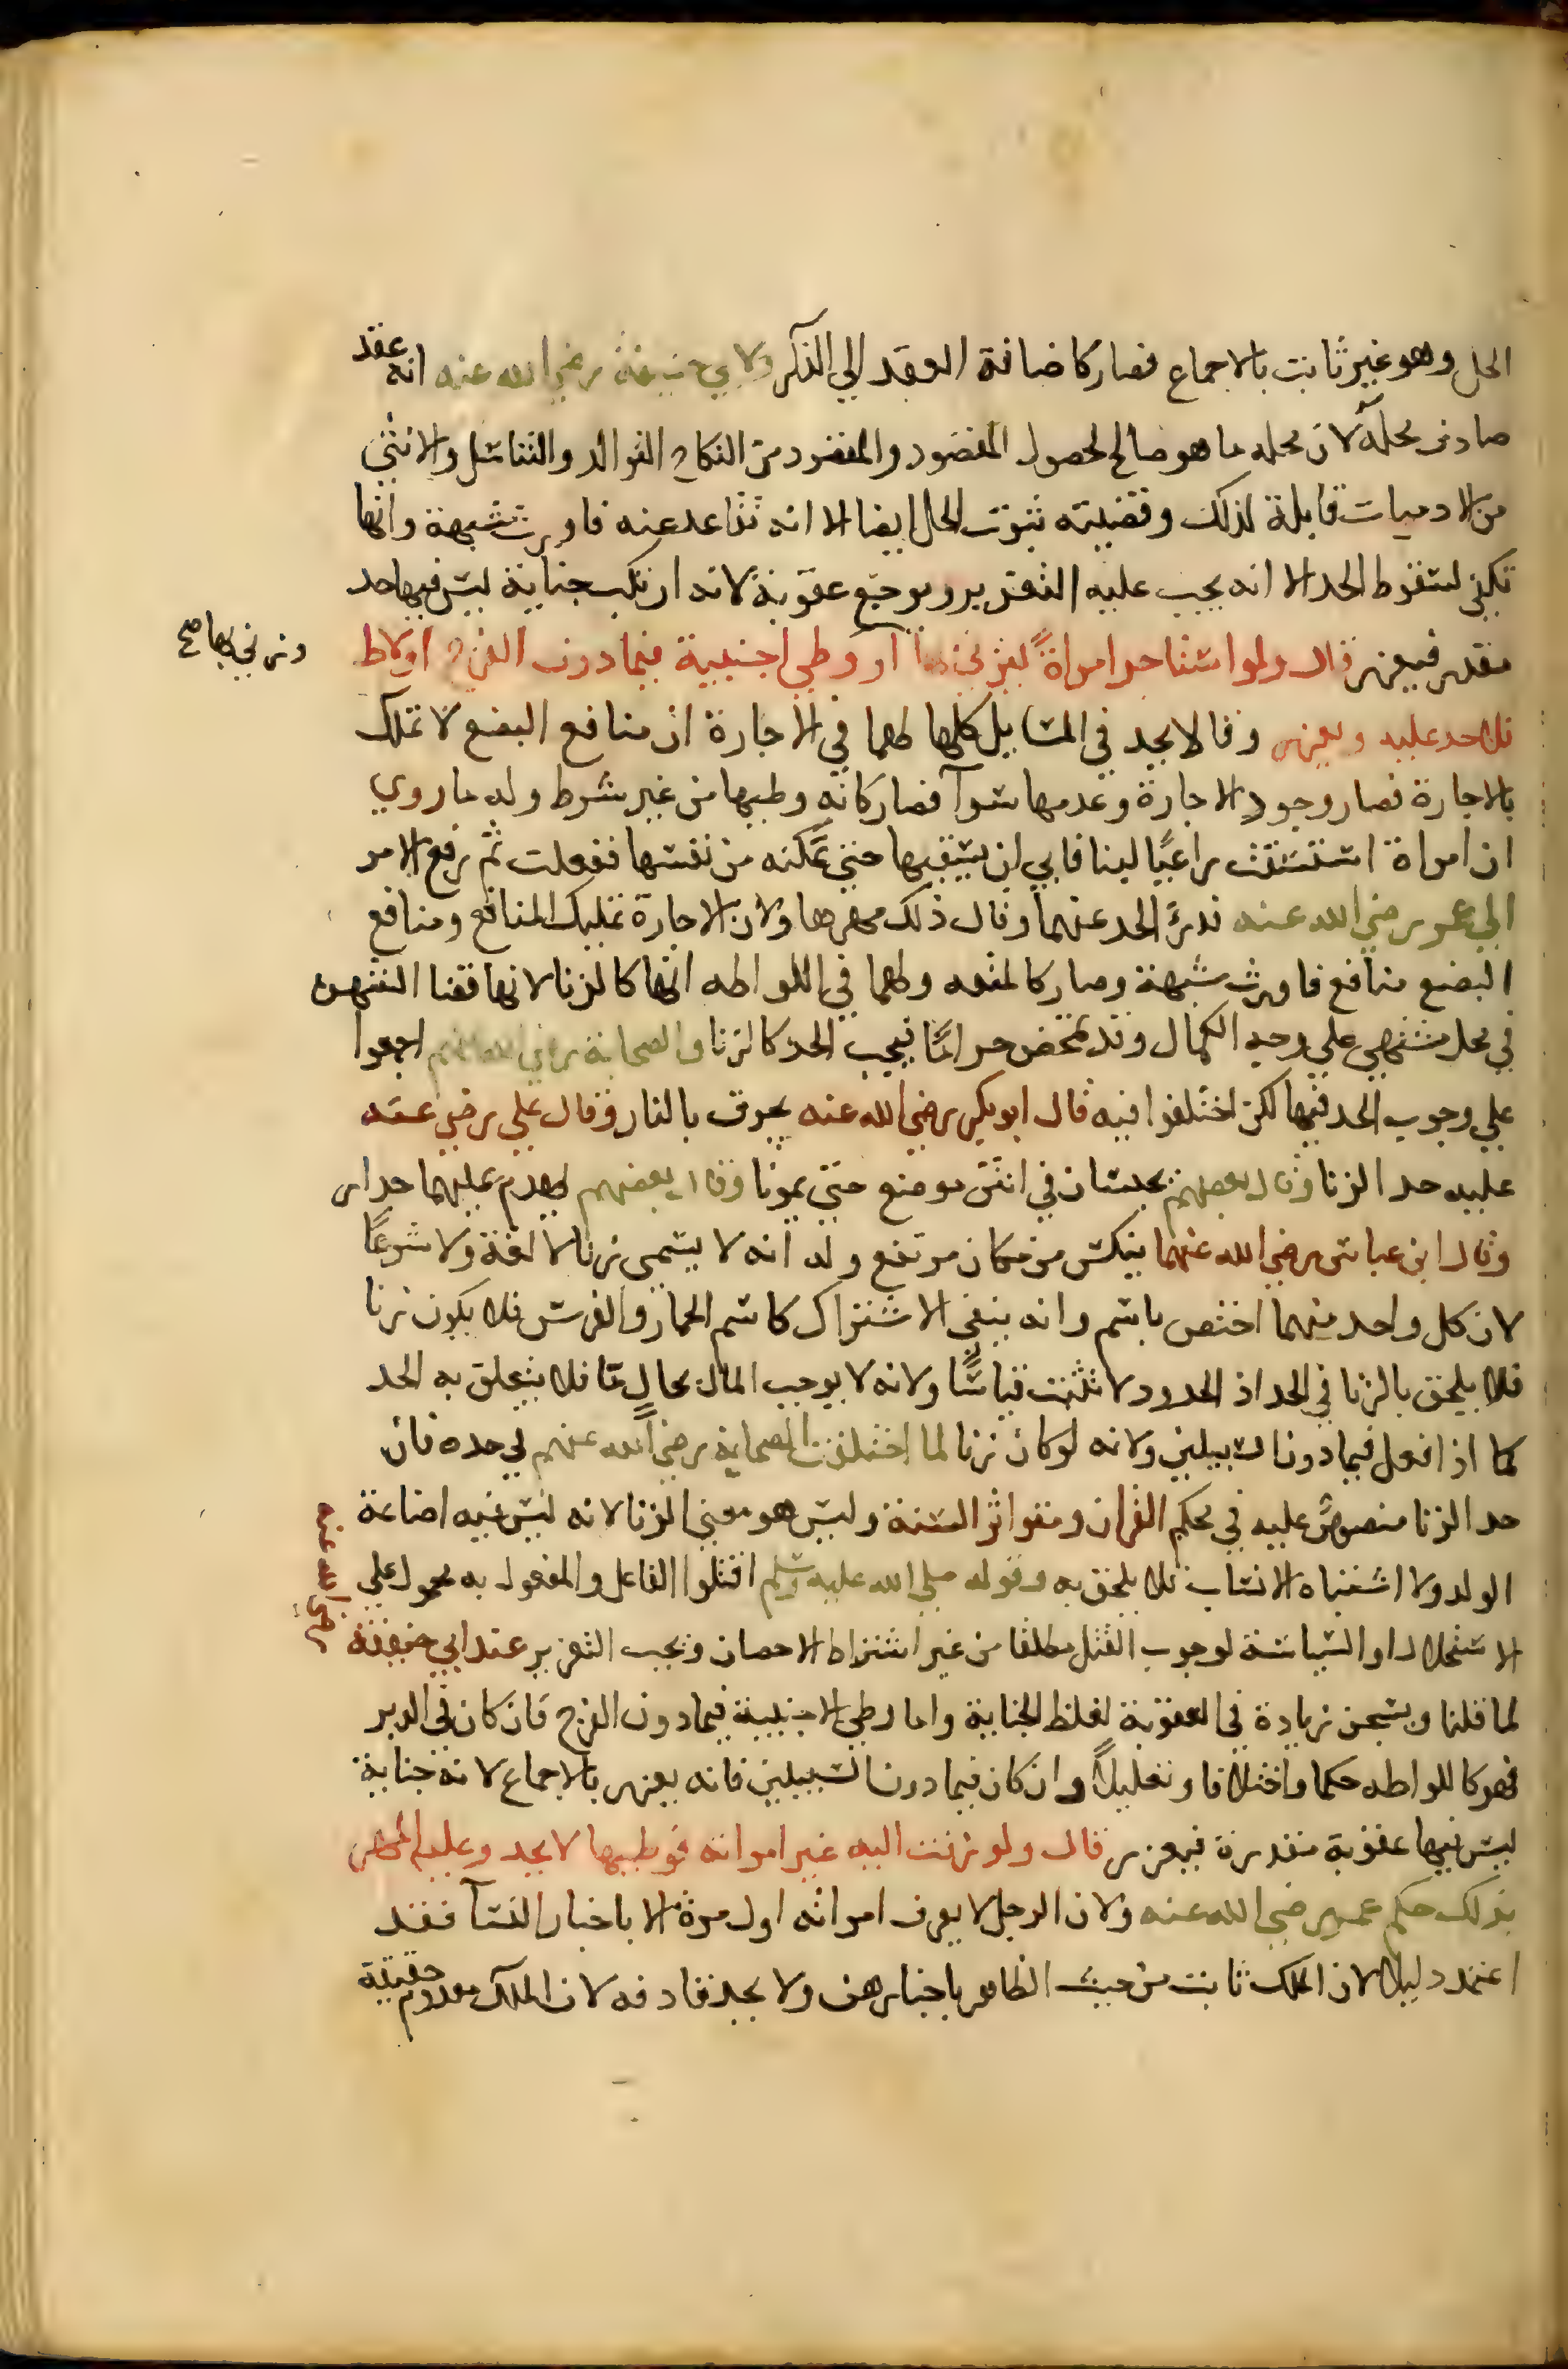 الحل وهو غير ثابت بالاجماع فصار كاضافة العقد الي الذكر ولابي حنيفة رضي الله عنه انه عقد
صادف محله لان محله ما هو صالح لحصول المقصود والمقصود من النكاح التوالد والتناسل والانثي
من الادميات قابلة لذلك وقضيته ثبوت الحل ايضا الا انه تقاعد عنه فاورث شبهة وانها
تكفي لسقوط الحد الا انه يجب عليه التعزير ويوجع عقوبةً لانه ارتكب جناية ليس فيها حد
مقدر فيعزر قال ولو استاجر امراةً ليزني بها او وطي اجنبية فيما دون الفرج او لاط
وزني بها صح
فلا حد عليه ويعزر وقالا يحد في المسايل كلها لهما في الاجارة ان منافع البضع لا تملك
بالاجارة فصار وجود الاجارة وعدمها سوآ فصار كانه وطيها من غير شرط وله ما روي
ان امراة استسقت راعيًا لبنا فابي ان يسقيها حتي تمكنه من نفسها ففعلت ثم رفع الامر
الي عمر رضي الله عنه فدرئ الحد عنهما وقال ذلك مهرها ولان الاجارة تمليك المنافع ومنافع
البضع منافع فاورث شبهة وصار كالمتعه ولهما في اللواطه انها كالزنا لانها قضا الشهوة
في محل مشتهي علي وجه الكمال وقد تمحض حرامًا فيجب الحد كالزنا والصحابة رضي الله عنهم اجمعوا
علي وجوب الحد فيها لكن اختلفوا فيه قال ابو بكر رضي الله عنه يحرق بالنار وقال علي رضي عنه
عليه حد الزنا وقال بعضهم يحبسان في انتن موضع حتي يموتا وقال بعضهم يهدم عليهما جدار
وقال ابن عباس رضي الله عنهما ينكس من مكان مرتفع وله انه لا يسمي زنا لا لغة ولا شرعًا
لان كل واحد منهما اختص باسم وانه ينفي الاشتراك كاسم الحمار والفرس فلا يكون زنا
فلا يلحق بالزنا في الحد اذ الحدود لا تثبت قياسًا ولانه لا يوجب المال بحالٍ ما فلا يتعلق به الحد
كما اذا فعل فيما دون السبيلين ولانه لو كان زنا لما اختلفت الصحابة رضي الله عنهم في حده فان
حد الزنا منصوص عليه في محكم القران ومتواتر السنة وليس هو معني الزنا لانه ليس فيه اضاعة
الولد ولا اشتباه الانساب فلا يلحق به وقوله صلي الله عليه وسلم اقتلوا الفاعل والمفعول به محمول علي
الاستحلال او السياسة لوجوب القتل مطلقا من غير اشتراط الاحصان ويجب التعزير عند ابي حنيفة
رضي الله عنه
لما قلنا ويسجن زيادة في العقوبة لغلظ الجناية واما وطي الاجنبية فيما دون الفرج فان كان في الدبر
فهو كاللواطه حكما واختلافا وتعليلاً وان كان فيما دون السبيلين فانه يعزر بالاجماع لانه جناية
ليس فيها عقوبة مقدرة فيعزر قال ولو زفت اليه غير امراته فوطيها لا يحد وعليه المهر
بذلك حكم عمر رضي الله عنه ولان الرجل لا يعرف امراته اول مرة الا باخبار النسآ فقد
اعتمد دليلا لان الملك ثابت من حيث الظاهر باخبارهن ولا يحد قاذفه لان الملك معدوم حقيقة